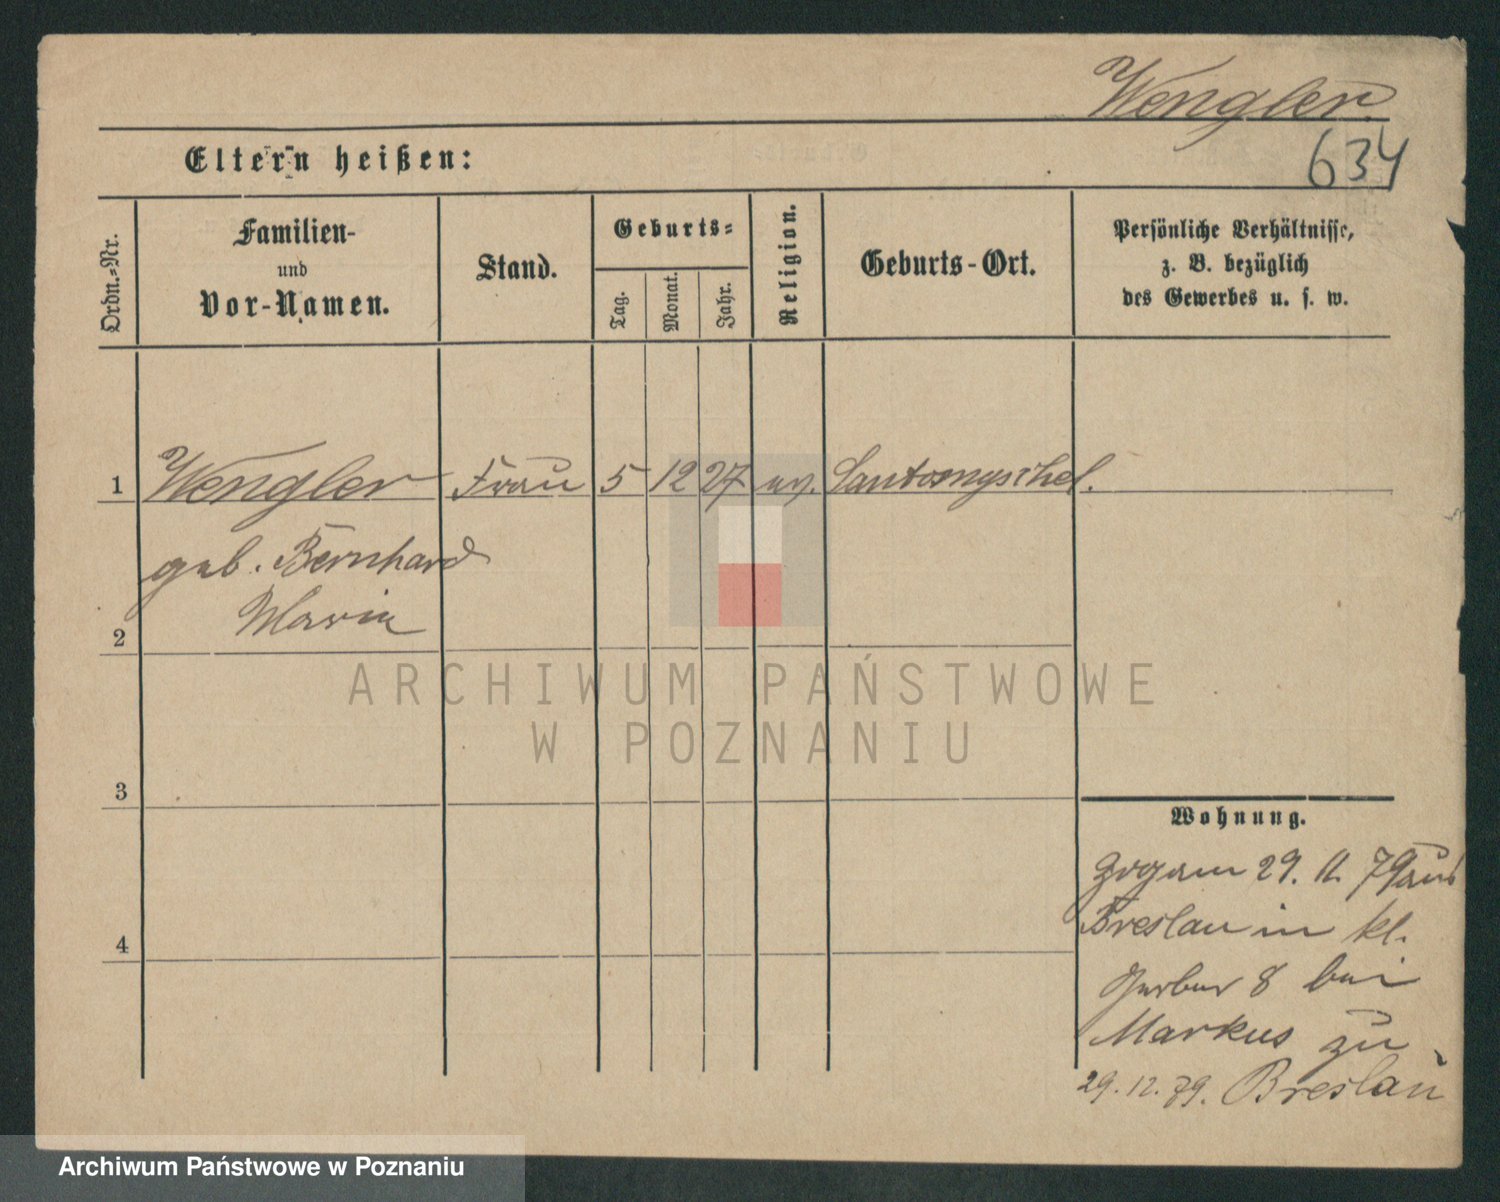 Wengler.
634
Eltern heißen:
Ordn.-Nr.
Familien-
und
Vor-Namen.
Stand.
Geburts-
Tag.
Monat.
Jahr.
Religion.
Geburts-Ort.
Persönliche Verhältnisse,
z. B. bezüglich
des Gewerbes u. s. w.
1 Wengler Frau 5 12 27 ev. Santomyschel.
geb. Bernhard
Marie
2
3
4
Wohnung.
Zog am 29. 11. 79 aus
Breslau in kl.
Gerber 8 bei
Markus zu
29. 12. 79. Breslau
ARCHIWUM PAŃSTWOWE
W POZNANIU
Archiwum Państwowe w Poznaniu